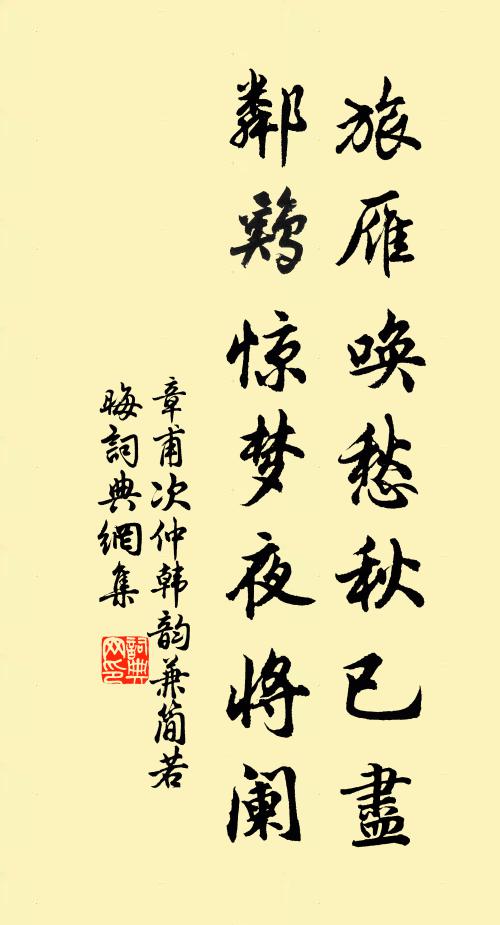 旅雁唤愁秋已盡
鄰鷄惊梦夜将阑
章甫次仲韩韵兼简若
晦詞典網集
詞典网印